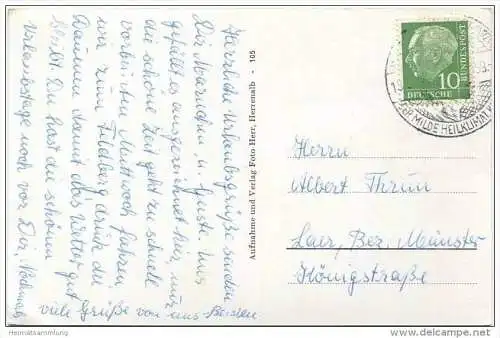 Herzliche Urlaubsgrüße senden
Dir Mariechen u. Gusti. Uns
gefällt es ausgezeichnet hier, nur
die schöne Zeit geht zu schnell
vorbei. Am Mittwoch fahren
wir zum Feldberg drück die
Daumen damit das Wetter gut
bleibt. Du hast die schönen
Urlaubstage noch vor Dir. Nochmals
viele Grüße von uns Beiden
Aufnahme und Verlag Foto Herr, Herrenalb. • 105
10
DEUTSCHE
BUNDESPOST
MILDE HEILKLIMA
Herrn
Albert Thrun
Laer, Bez. Münster
Königstraße
Heimatsammlung
www.delcampe.net